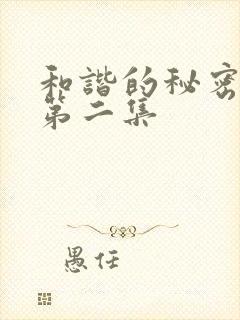 和諧的秘密
第二集
愚任